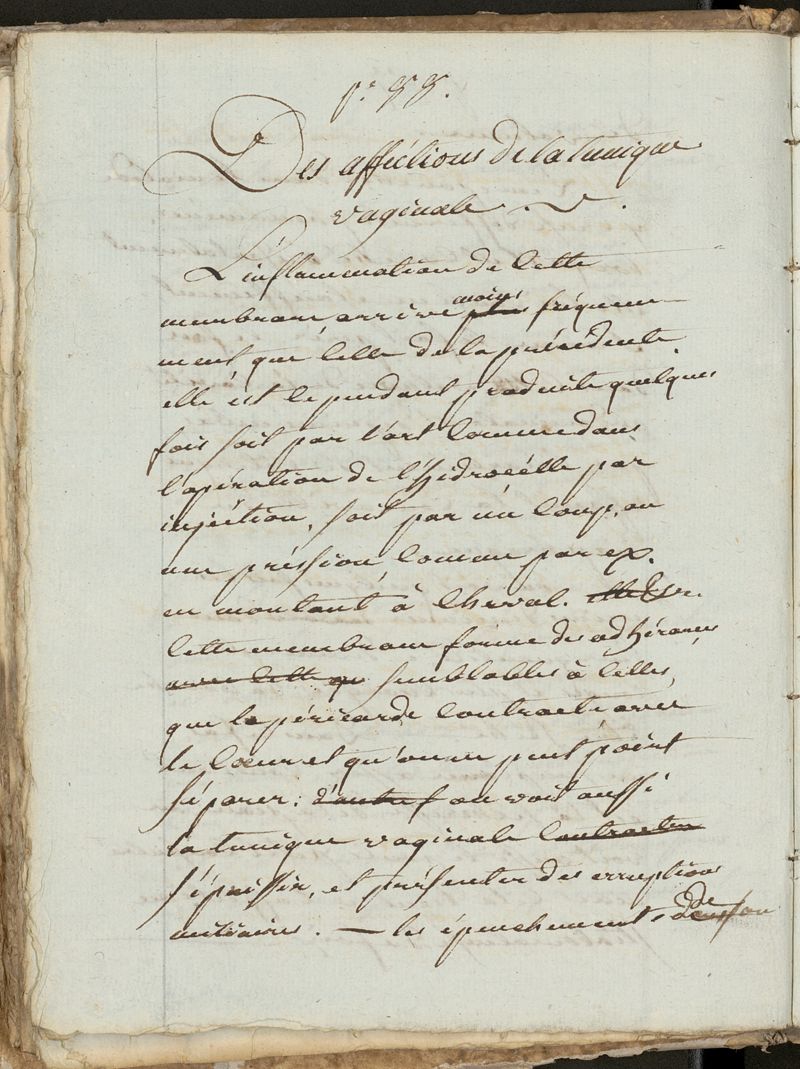 Des affections de la tunique
vaginale.
L'inflammation de Cette
membrane arrive moins fréquem
ment que Celle de la précédente.
elle est Cependant produite quelques
fois soit par l'art Comme dans
l'opération de l'hidrocéle par
injection, soit par un Coup, ou
une préssion, Comme par ex.
en montant à Cheval.
Cette membrane forme des adhérances
avec Cette qu semblables à Celles,
que le péricarde Contracte avec
le Cœur et qu'on ne peut point
séparer: d'autres on voit aussi
la tunique vaginale Contracter
s'épaissir, et présenter des erruptions
miliaires. — les épenchements de